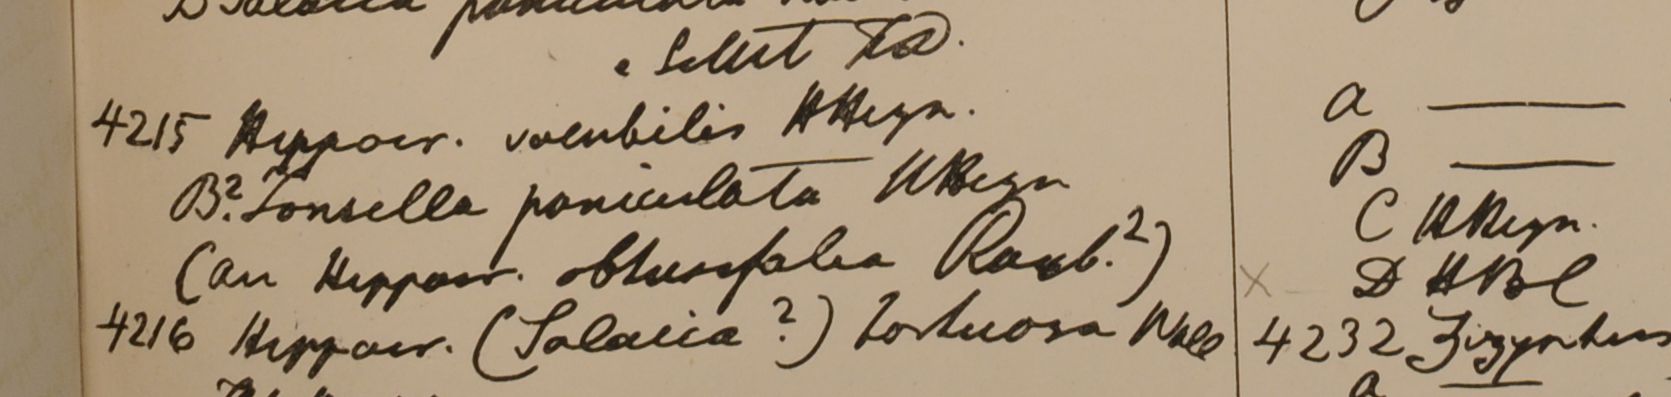 B Salacia paniculata
Sillet
4215 Hippocr. volubilis HHeyn.
B? Tonsella paniculata HHeyn
(an Hippocr. obtusifolia Roxb.?)
4216 Hippocr. (Salacia?) tortuosa Wall
a
B
C HHeyn.
x D HBC
4232 Zizyphus
a